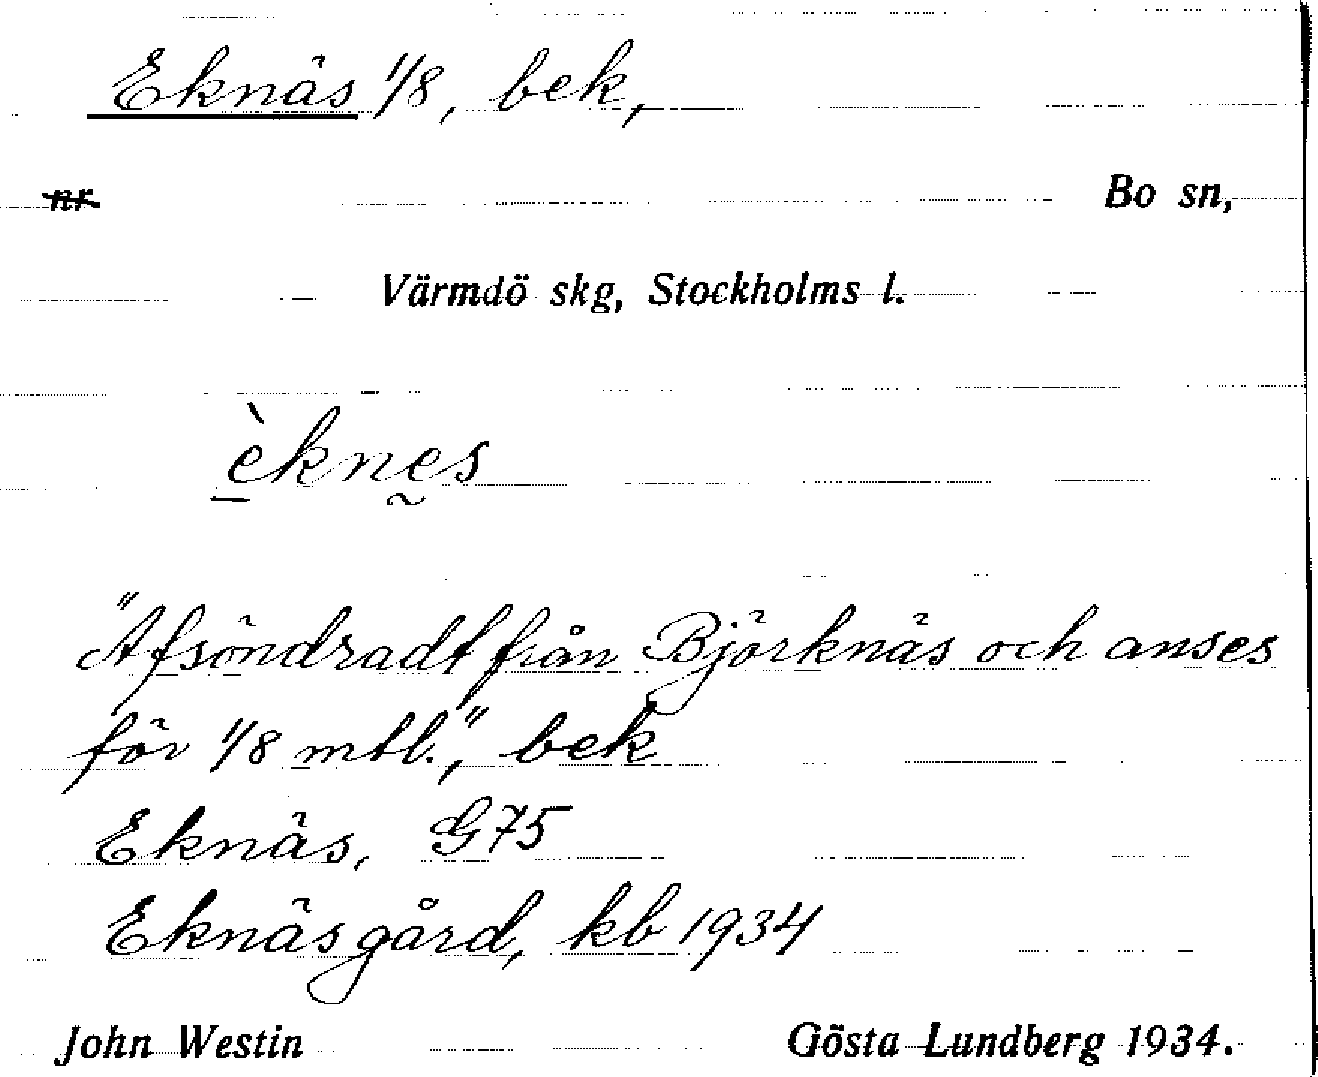 Eknäs 1/8, bek,
nr
Bo sn,
Värmdö skg, Stockholms l.
èknes
"Afsöndradt från Björknäs och anses
för 1/8 mtl.", bek
Eknäs, G75
Eknäs gård, kb 1934
John Westin Gösta Lundberg 1934.